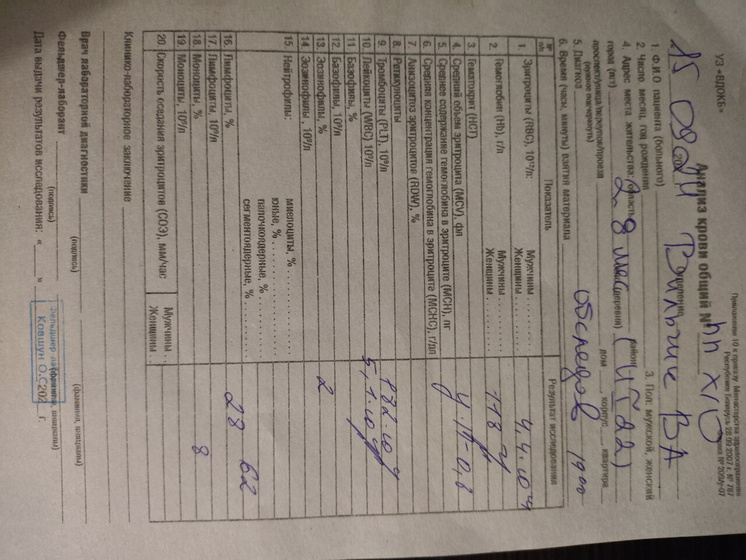 Приложение 10 к приказу Министерства здравоохранения
Республики Беларусь 28.09.2007 г. № 787
Форма № 205/у-07
УЗ «ВДОКБ»
Анализ крови общий №
15 09
1. Ф.И.О. пациента (больного)
2. Число месяц, год рождения 2 г 8 мес 3. Пол: мужской, женский
4. Адрес места жительства: область район
город (пгт) (деревня)
проспект/улица/переулок/проезд дом корпус квартира
(нужное подчеркнуть)
5. Диагноз
6. Время (часы, минуты) взятия материала 19 00
№ п/п Показатель Результат исследования
1. Эритроциты (RBC), 10¹²/л: Мужчины
Женщины 4,4·10
2. Гемоглобин (Hb), г/л Мужчины
Женщины 118
3. Гематокрит (HCT)
4. Средний объем эритроцита (MCV), фл
5. Среднее содержание гемоглобина в эритроците (MCH), пг
6. Средняя концентрация гемоглобина в эритроците (MCHC), г/дл
7. Анизоцитоз эритроцитов (RDW), %
8. Ретикулоциты
9. Тромбоциты (PLT), 10⁹/л
10. Лейкоциты (WBC) 10⁹/л 5,1·10⁹
11. Базофилы, %
12. Базофилы, 10⁹/л
13. Эозинофилы, % 2
14. Эозинофилы 10⁹/л
15. Нейтрофилы: миелоциты, %
юные, %
палочкоядерные, %
сегментоядерные, % 62
16. Лимфоциты, % 28
17. Лимфоциты, 10⁹/л
18. Моноциты, % 8
19. Моноциты, 10⁹/л
20. Скорость оседания эритроцитов (СОЭ), мм/час Мужчины
Женщины
Клинико-лабораторное заключение
Врач лабораторной диагностики
(подпись) (фамилия, инициалы)
Фельдшер-лаборант
(подпись) (фамилия, инициалы)
Фельдшер-лаборант
Ковшун О.С.
Дата выдачи результатов исследования: « » 20 г.